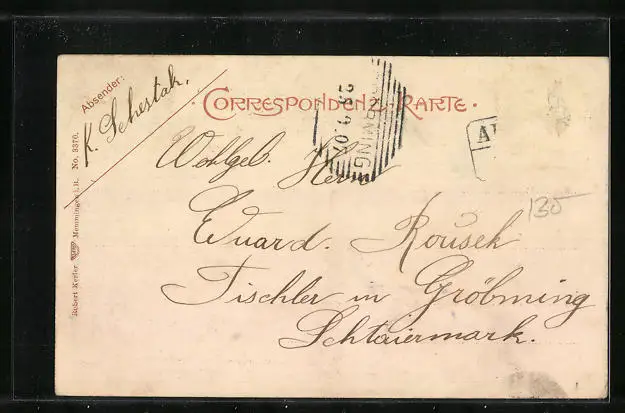 Absender:
K. Schestak.
CORRESPONDENZ-KARTE.
GRÖBMING
28.9.07
Wohlgel. Herrn
Eduard. Rousek
Tischler in Gröbming
Schtaiermark.
135
Robert Keller Memmingen i.B. No. 3370.